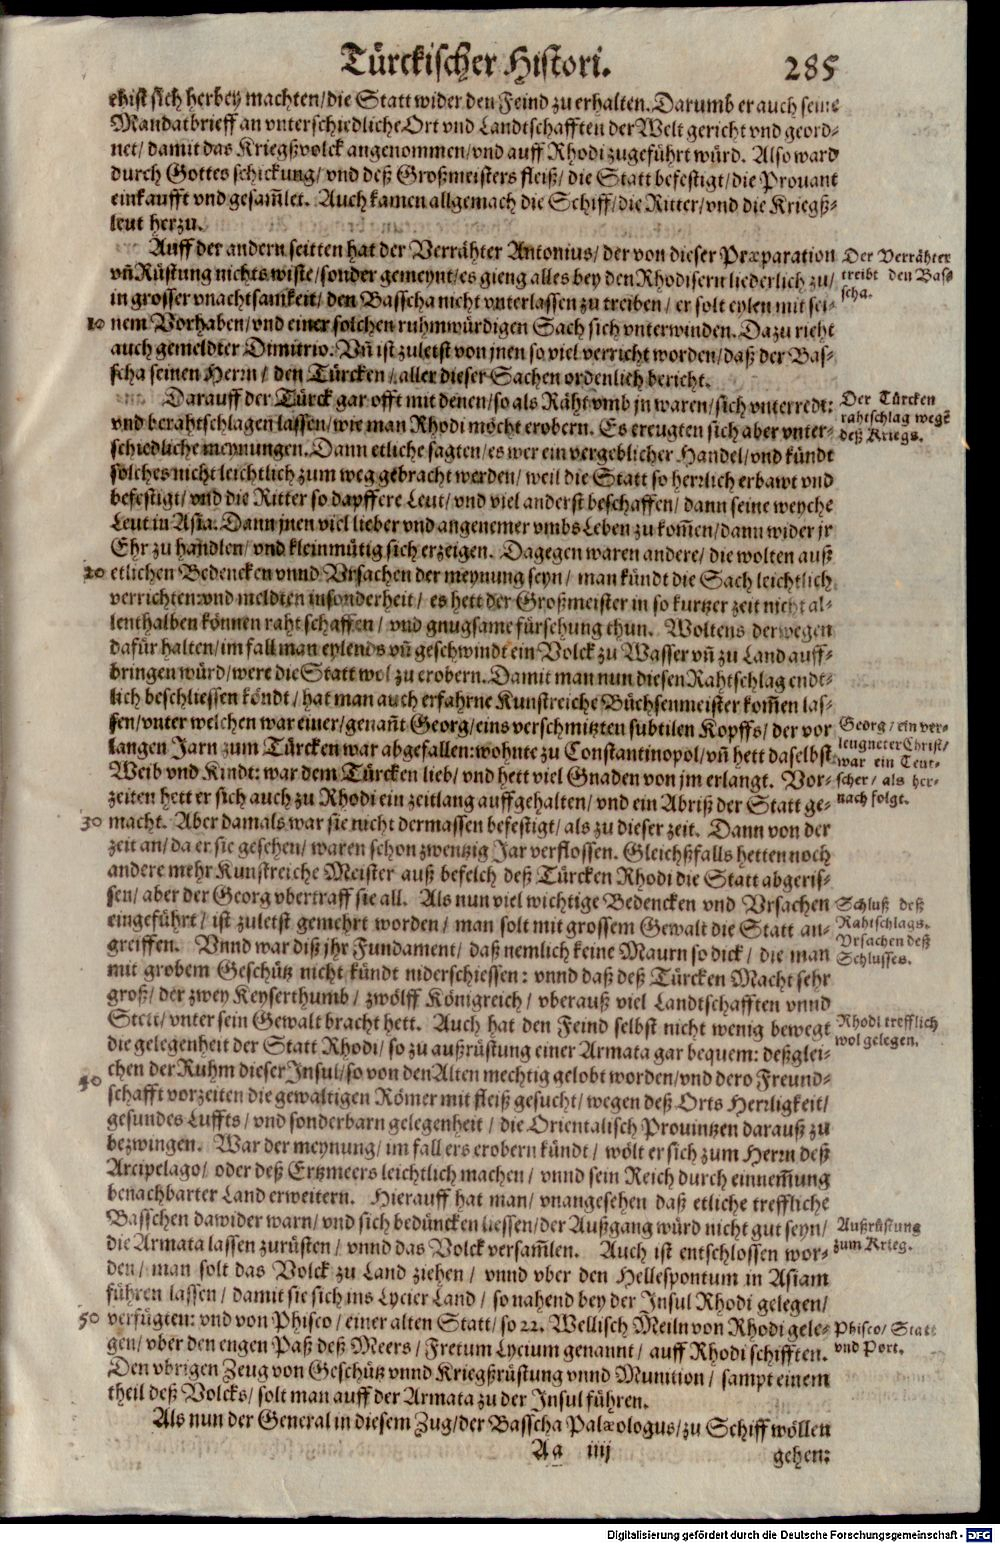 Türckischer Histori. 285
ehist sich herbey machten/die Statt wider den Feind zu erhalten. Darumb er auch seine
Mandatbrieff an vnterschiedliche Ort vnd Landtschafften der Welt gericht vnd geord-
net/ damit das Kriegßvolck angenommen/vnd auff Rhodi zugeführt würd. Also ward
durch Gottes schickung/ vnd deß Großmeisters fleiß/ die Statt befestigt/die Prouant
einkaufft vnd gesam̃let. Auch kamen allgemach die Schiff/die Ritter/vnd die Kriegß-
leut herzu.
Auff der andern seitten hat der Verrähter Antonius/ der von dieser Præparation
vñ Rüstung nichts wiste/sonder gemeynt/es gieng alles bey den Rhodisern liederlich zu/
in grosser vnachtsamkeit/ den Basscha nicht vnterlassen zu treiben/ er solt eylen mit sei-
10 nem Vorhaben/vnd einer solchen ruhmwürdigen Sach sich vnterwinden. Dazu rieht
auch gemeldter Dimitrio. Vñ ist zuletst von jnen so viel verricht worden/daß der Bas-
scha seinen Herrn/ den Türcken/ aller dieser Sachen ordenlich bericht.
Der Verrähter
treibt den Bas-
scha.
Darauff der Türck gar offt mit denen/so als Räht vmb jn waren/sich vnterredt:
vnd berahtschlagen lassen/wie man Rhodi möcht erobern. Es ereugten sich aber vnter-
schiedliche meynungen. Dann etliche sagten/es wer ein vergeblicher Handel/vnd kündt
solches nicht leichtlich zum weg gebracht werden/ weil die Statt so herrlich erbawt vnd
befestigt/ vnd die Ritter so dapffere Leut/ vnd viel anderst beschaffen/ dann seine weyche
Leut in Asia. Dann jnen viel lieber vnd angenemer vmbs Leben zu kom̃en/dann wider jr
Ehr zu handlen/ vnd kleinmütig sich erzeigen. Dagegen waren andere/ die wolten auß
20 etlichen Bedencken vnnd Vrsachen der meynung seyn/ man kündt die Sach leichtlich
verrichten: vnd meldten insonderheit/ es hett der Großmeister in so kurtzer zeit nicht al-
lenthalben können raht schaffen/ vnd gnugsame fürsehung thun. Woltens derwegen
dafür halten/im fall man eylends vñ geschwindt ein Volck zu Wasser vñ zu Land auff-
bringen würd/were die Statt wol zu erobern. Damit man nun diesen Rahtschlag endt-
lich beschliessen köndt/ hat man auch erfahrne Kunstreiche Büchsenmeister kom̃en las-
sen/vnter welchen war einer/genañt Georg/eins verschmitzten subtilen Kopffs/ der vor
langen Jarn zum Türcken war abgefallen: wohnte zu Constantinopol/vñ hett daselbst
Weib vnd Kindt: war dem Türcken lieb/ vnd hett viel Gnaden von jm erlangt. Vor-
zeiten hett er sich auch zu Rhodi ein zeitlang auffgehalten/ vnd ein Abriß der Statt ge-
30 macht. Aber damals war sie nicht dermassen befestigt/ als zu dieser zeit. Dann von der
zeit an/da er sie gesehen/ waren schon zwentzig Jar verflossen. Gleichßfalls hetten noch
andere mehr Kunstreiche Meister auß befelch deß Türcken Rhodi die Statt abgeris-
sen/ aber der Georg vbertraff sie all. Als nun viel wichtige Bedencken vnd Vrsachen
eingeführt/ ist zuletst gemehrt worden/ man solt mit grossem Gewalt die Statt an-
greiffen. Vnnd war diß jhr Fundament/ daß nemlich keine Maurn so dick/ die man
mit grobem Geschütz nicht kündt niderschiessen: vnnd daß deß Türcken Macht sehr
groß/ der zwey Keyserthumb/ zwölff Königreich/ vberauß viel Landtschafften vnnd
Stett/vnter sein Gewalt bracht hett. Auch hat den Feind selbst nicht wenig bewegt
die gelegenheit der Statt Rhodi/ so zu außrüstung einer Armata gar bequem: deßglei-
40 chen der Ruhm dieser Insul/so von den Alten mechtig gelobt worden/vnd dero Freund-
schafft vorzeiten die gewaltigen Römer mit fleiß gesucht/ wegen deß Orts Herrligkeit/
gesundes Luffts/ vnd sonderbarn gelegenheit/ die Orientalisch Prouintzen darauß zu
bezwingen. War der meynung/ im fall ers erobern kündt/ wölt er sich zum Herrn deß
Arcipelago/ oder deß Ertzmeers leichtlich machen/ vnnd sein Reich durch einnem̃ung
benachbarter Land erweitern. Hierauff hat man/ vnangesehen daß etliche treffliche
Basschen dawider warn/ vnd sich bedüncken liessen/der Außgang würd nicht gut seyn/
die Armata lassen zurüsten/ vnnd das Volck versam̃len. Auch ist entschlossen wor-
den/ man solt das Volck zu Land ziehen/ vnnd vber den Hellespontum in Asiam
führen lassen/ damit sie sich ins Lycier Land/ so nahend bey der Insul Rhodi gelegen/
50 verfügten: vnd von Phisco/ einer alten Statt/ so 22. Wellisch Meiln von Rhodi gele-
gen/ vber den engen Paß deß Meers/ Fretum Lycium genannt/ auff Rhodi schifften.
Den vbrigen Zeug von Geschütz vnnd Kriegßrüstung vnnd Munition/ sampt einem
theil deß Volcks/ solt man auff der Armata zu der Insul führen.
Der Türcken
rahtschlag wegẽ
deß Kriegs.
Georg/ ein ver-
leugneter Christ/
war ein Teut-
scher/ als her-
nach folgt.
Schluß deß
Rahtschlags.
Vrsachen deß
Schlusses.
Rhodi trefflich
wol gelegen.
Außrüstung
zum Krieg.
Phisco/ Statt
vnd Port.
Als nun der General in diesem Zug/der Basscha Palæologus/zu Schiff wöllen
Aa iiij gehen:
Digitalisierung gefördert durch die Deutsche Forschungsgemeinschaft - DFG